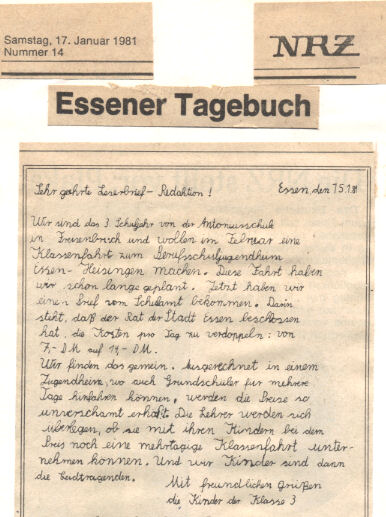 Samstag, 17. Januar 1981
Nummer 14
NRZ
Essener Tagebuch
Sehr geehrte Leserbrief-Redaktion!
Essen, den 15.1.81
Wir sind das 3. Schuljahr von der Antoniusschule
in Freisenbruch und wollen im Februar eine
Klassenfahrt zum Berufsschuljugendheim
Essen-Heisingen machen. Diese Fahrt haben
wir schon lange geplant. Jetzt haben wir
einen Brief vom Schulamt bekommen. Darin
steht, daß der Rat der Stadt Essen beschlossen
hat, die Kosten pro Tag zu verdoppeln: von
7,- DM auf 14,- DM.
Wir finden das gemein. Ausgerechnet in einem
Jugendheim, wo auch Grundschüler für mehrere
Tage hinfahren können, werden die Preise so
unverschämt erhöht. Die Lehrer werden sich
überlegen, ob sie mit ihren Kindern bei dem
Preis noch eine mehrtägige Klassenfahrt unter-
nehmen können. Und wir Kinder sind dann
die Leidtragenden.
Mit freundlichen Grüßen
die Kinder der Klasse 3